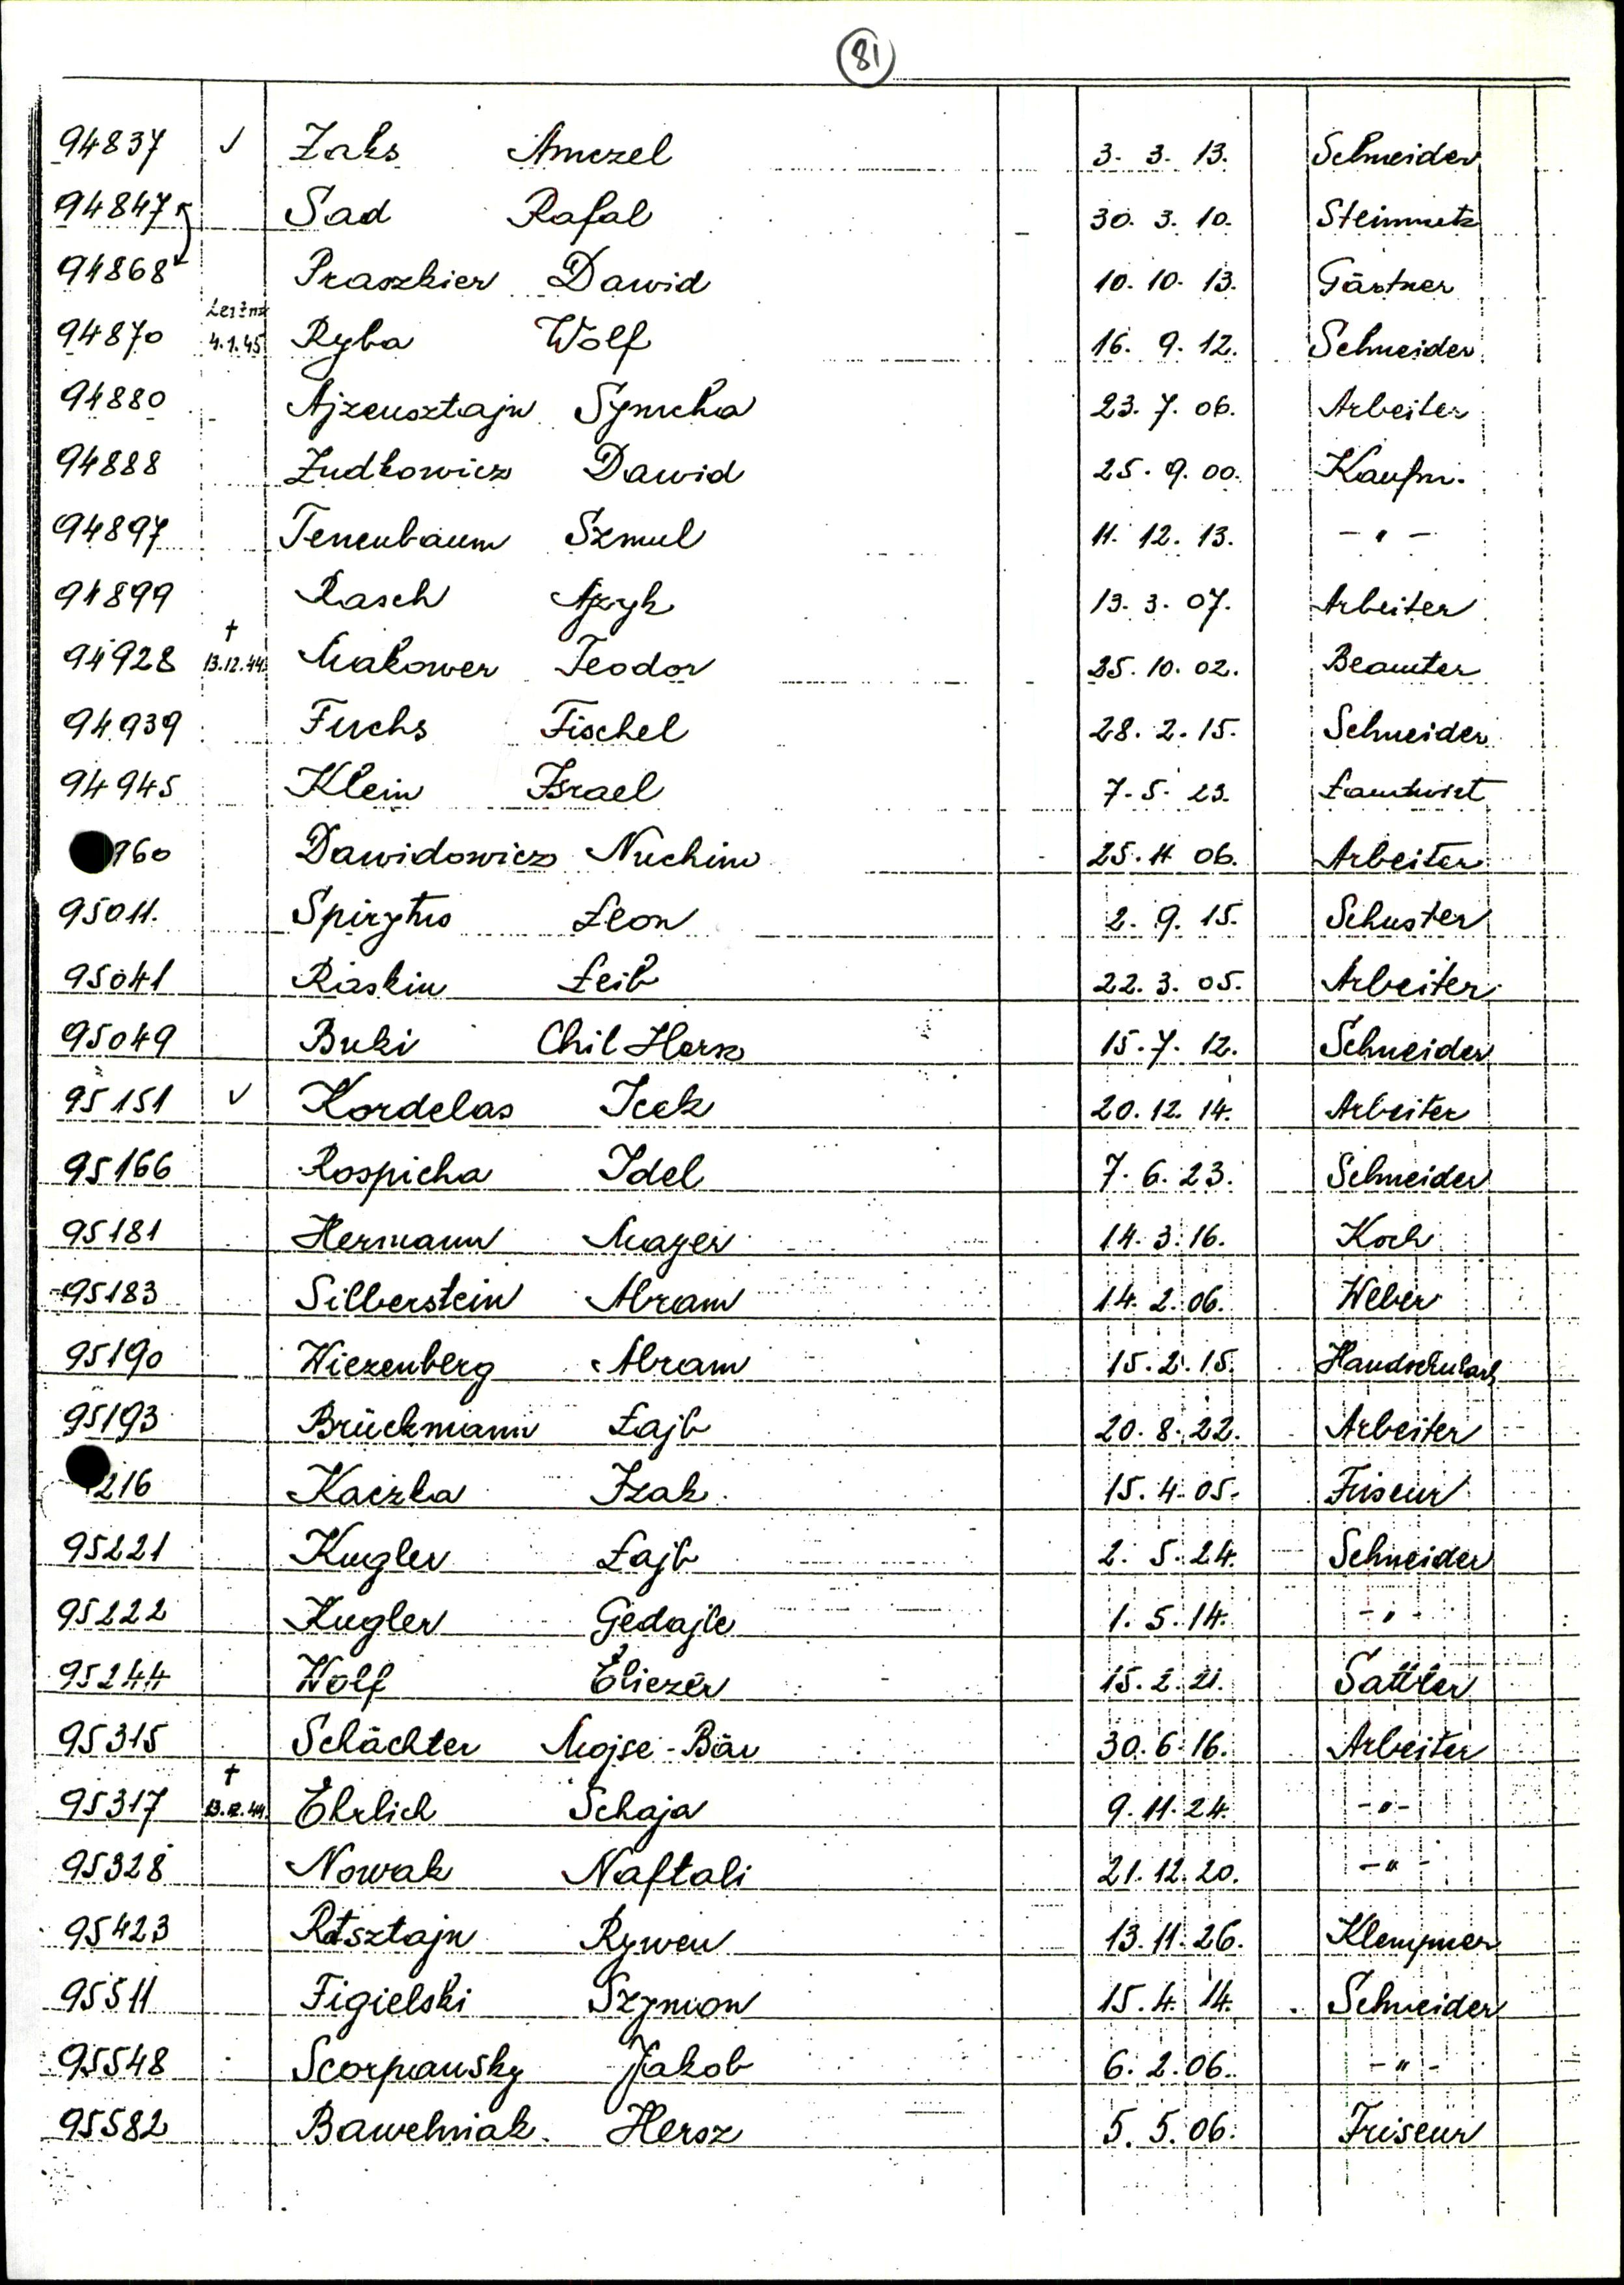 81
94837 ✓ Zaks Amczel 3. 3. 13. Schneider
94847 Sad Rafal 30. 3. 10. Steinmetz
94868 Praszkier Dawid 10. 10. 13. Gärtner
94870 4.1.45 Ryba Wolf 16. 9. 12. Schneider
94880 Ajzensztajn Symcha 23. 7. 06. Arbeiter
94888 Zudkowicz Dawid 25. 9. 00. Kaufm.
94897 Tenenbaum Szmul 11. 12. 13. - " -
94899 Rasch Ajzyk 13. 3. 07. Arbeiter
94928 † 13.12.44. Makower Teodor 25. 10. 02. Beamter
94939 Fuchs Fischel 28. 2. 15. Schneider
94945 Klein Israel 7. 5. 23. Landwirt
960 Dawidowicz Nuchim 25. 11 06. Arbeiter
95011. Spirytus Leon 2. 9. 15. Schuster
95041 Raskin Leib 22. 3. 05. Arbeiter
95049 Buki Chil Hersz 15. 7. 12. Schneider
95151 ✓ Kordelas Icek 20. 12. 14. Arbeiter
95166 Rospicha Idel 7. 6. 23. Schneider
95181 Hermann Majer 14. 3. 16. Koch
95183 Silberstein Abram 14. 2. 06. Weber
95190 Wiezenberg Abram 15. 2. 15.
95193 Brückmann Lajb 20. 8. 22. Arbeiter
216 Kaczka Izak 15. 4. 05. Friseur
95221 Kugler Lajb 2. 5. 24. Schneider
95222 Kugler Gedajle 1. 5. 14. - " -
95244 Wolf Eliezer 15. 2. 21. Sattler
95315 Schächter Mojse-Bär 30. 6. 16. Arbeiter
95317 † 13.12.44. Ehrlich Schaja 9. 11. 24. - " -
95328 Nowak Naftali 21. 12. 20. - " -
95423 Rotsztajn Rywen 13. 11. 26. Klempner
95511 Figielski Szymon 15. 4. 14. Schneider
95548 Scorpansky Jakob 6. 2. 06. - " -
95582 Bawelniak Hersz 5. 5. 06. Friseur